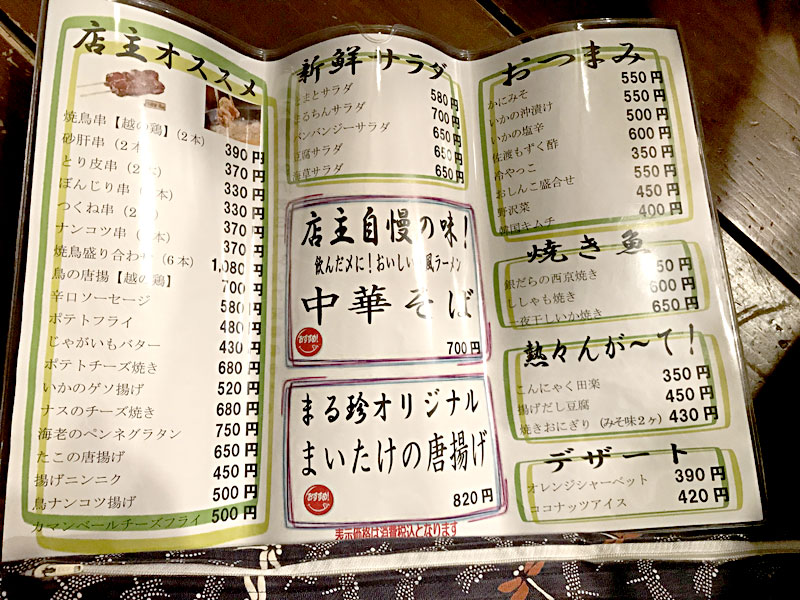 店主オススメ
焼鳥串【越の鶏】(2本) 390円
砂肝串(2本) 370円
とり皮串(2本) 330円
ぼんじり串(本) 330円
つくね串(2 370円
ナンコツ串(本) 370円
焼鳥盛り合わせ(6本) 1,080円
鳥の唐揚【越の鶏】 700円
辛口ソーセージ 580円
ポテトフライ 480円
じゃがいもバター 430円
ポテトチーズ焼き 680円
いかのゲソ揚げ 520円
ナスのチーズ焼き 680円
海老のペンネグラタン 750円
たこの唐揚げ 650円
揚げニンニク 450円
鳥ナンコツ揚げ 500円
カマンベールチーズフライ 500円
新鮮サラダ
とまとサラダ 580円
まるちんサラダ 700円
バンバンジーサラダ 650円
豆腐サラダ 650円
海草サラダ 650円
店主自慢の味!
飲んだ〆に!おいしい 風ラーメン
中華そば
おすすめ!
700円
まる珍オリジナル
まいたけの唐揚げ
おすすめ!
820円
表示価格は消費税込となります
おつまみ
かにみそ 550円
いかの沖漬け 550円
いかの塩辛 500円
佐渡もずく酢 600円
冷やっこ 350円
おしんこ盛合せ 550円
野沢菜 450円
韓国キムチ 400円
焼き魚
銀だらの西京焼き 50円
ししゃも焼き 600円
一夜干しいか焼き 650円
熱々んが〜て!
こんにゃく田楽 350円
揚げだし豆腐 450円
焼きおにぎり(みそ味2ヶ) 430円
デザート
オレンジシャーベット 390円
ココナッツアイス 420円